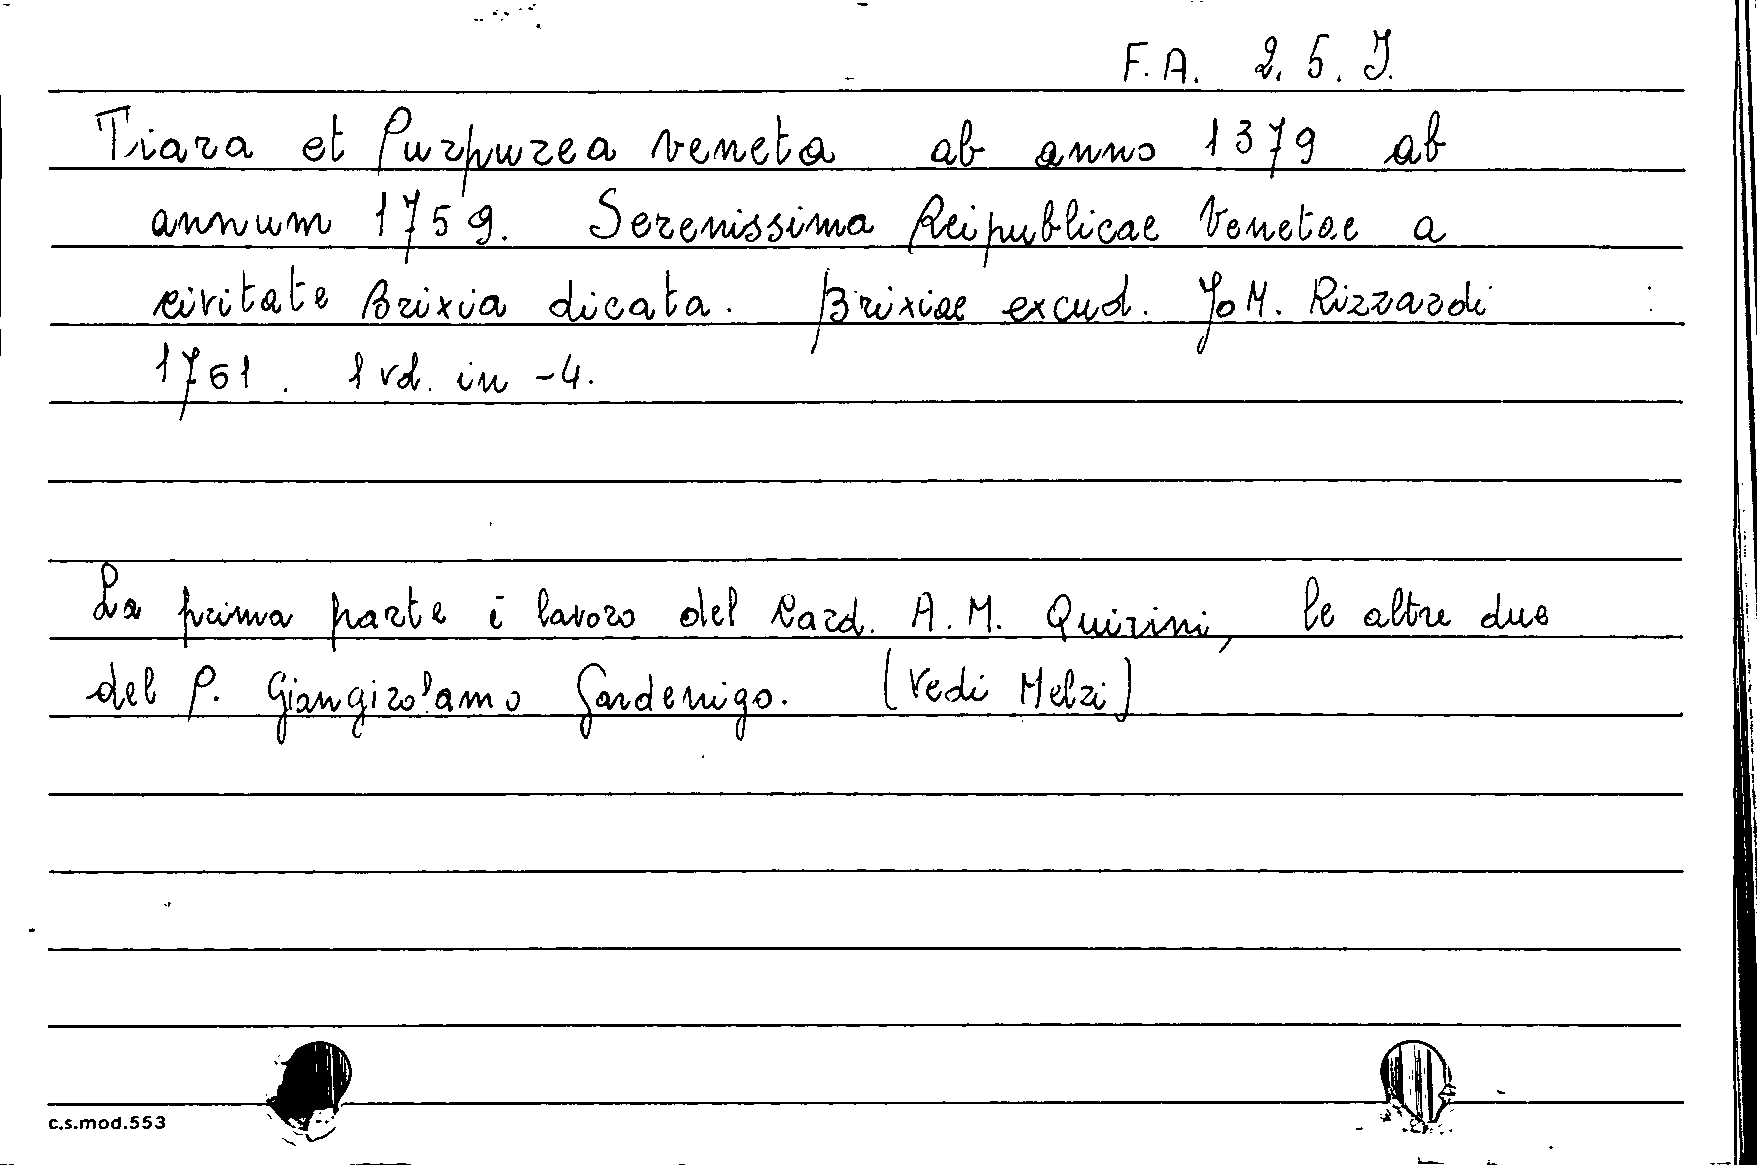 F.A. 2.5.J.
Tiara et Purpurea veneta ab anno 1379 ab
annum 1759. Serenissima Reipublicae Venetae a
civitate Brixia dicata. Brixiae excud. Jo M. Rizzardi
1761. 1 vol. in -4.
La prima parte è lavoro del Card. A. M. Quirini, le altre due
del P. Giangirolamo Gardenigo. (Vedi Melzi)
c.s.mod.553